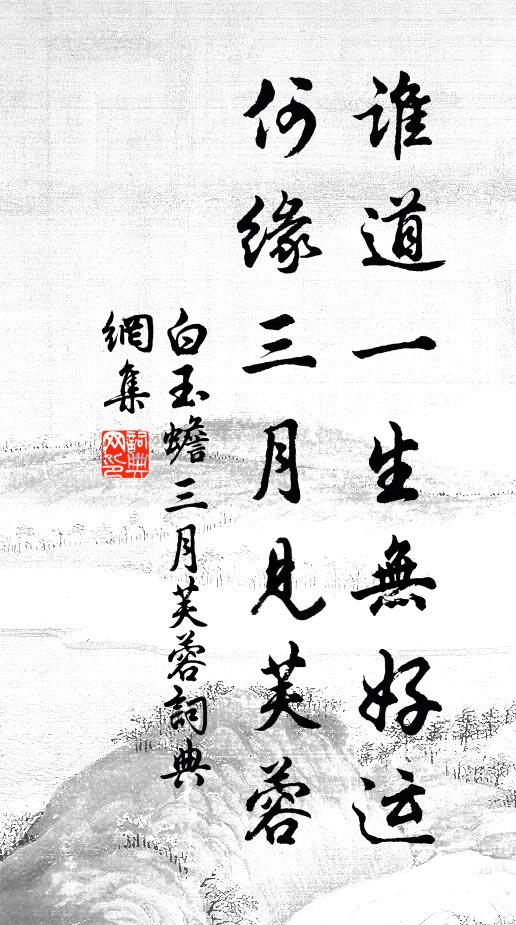 谁道一生無好运
何緣三月見芙蓉
白玉蟾三月芙蓉詞典
網集
詞典
网印